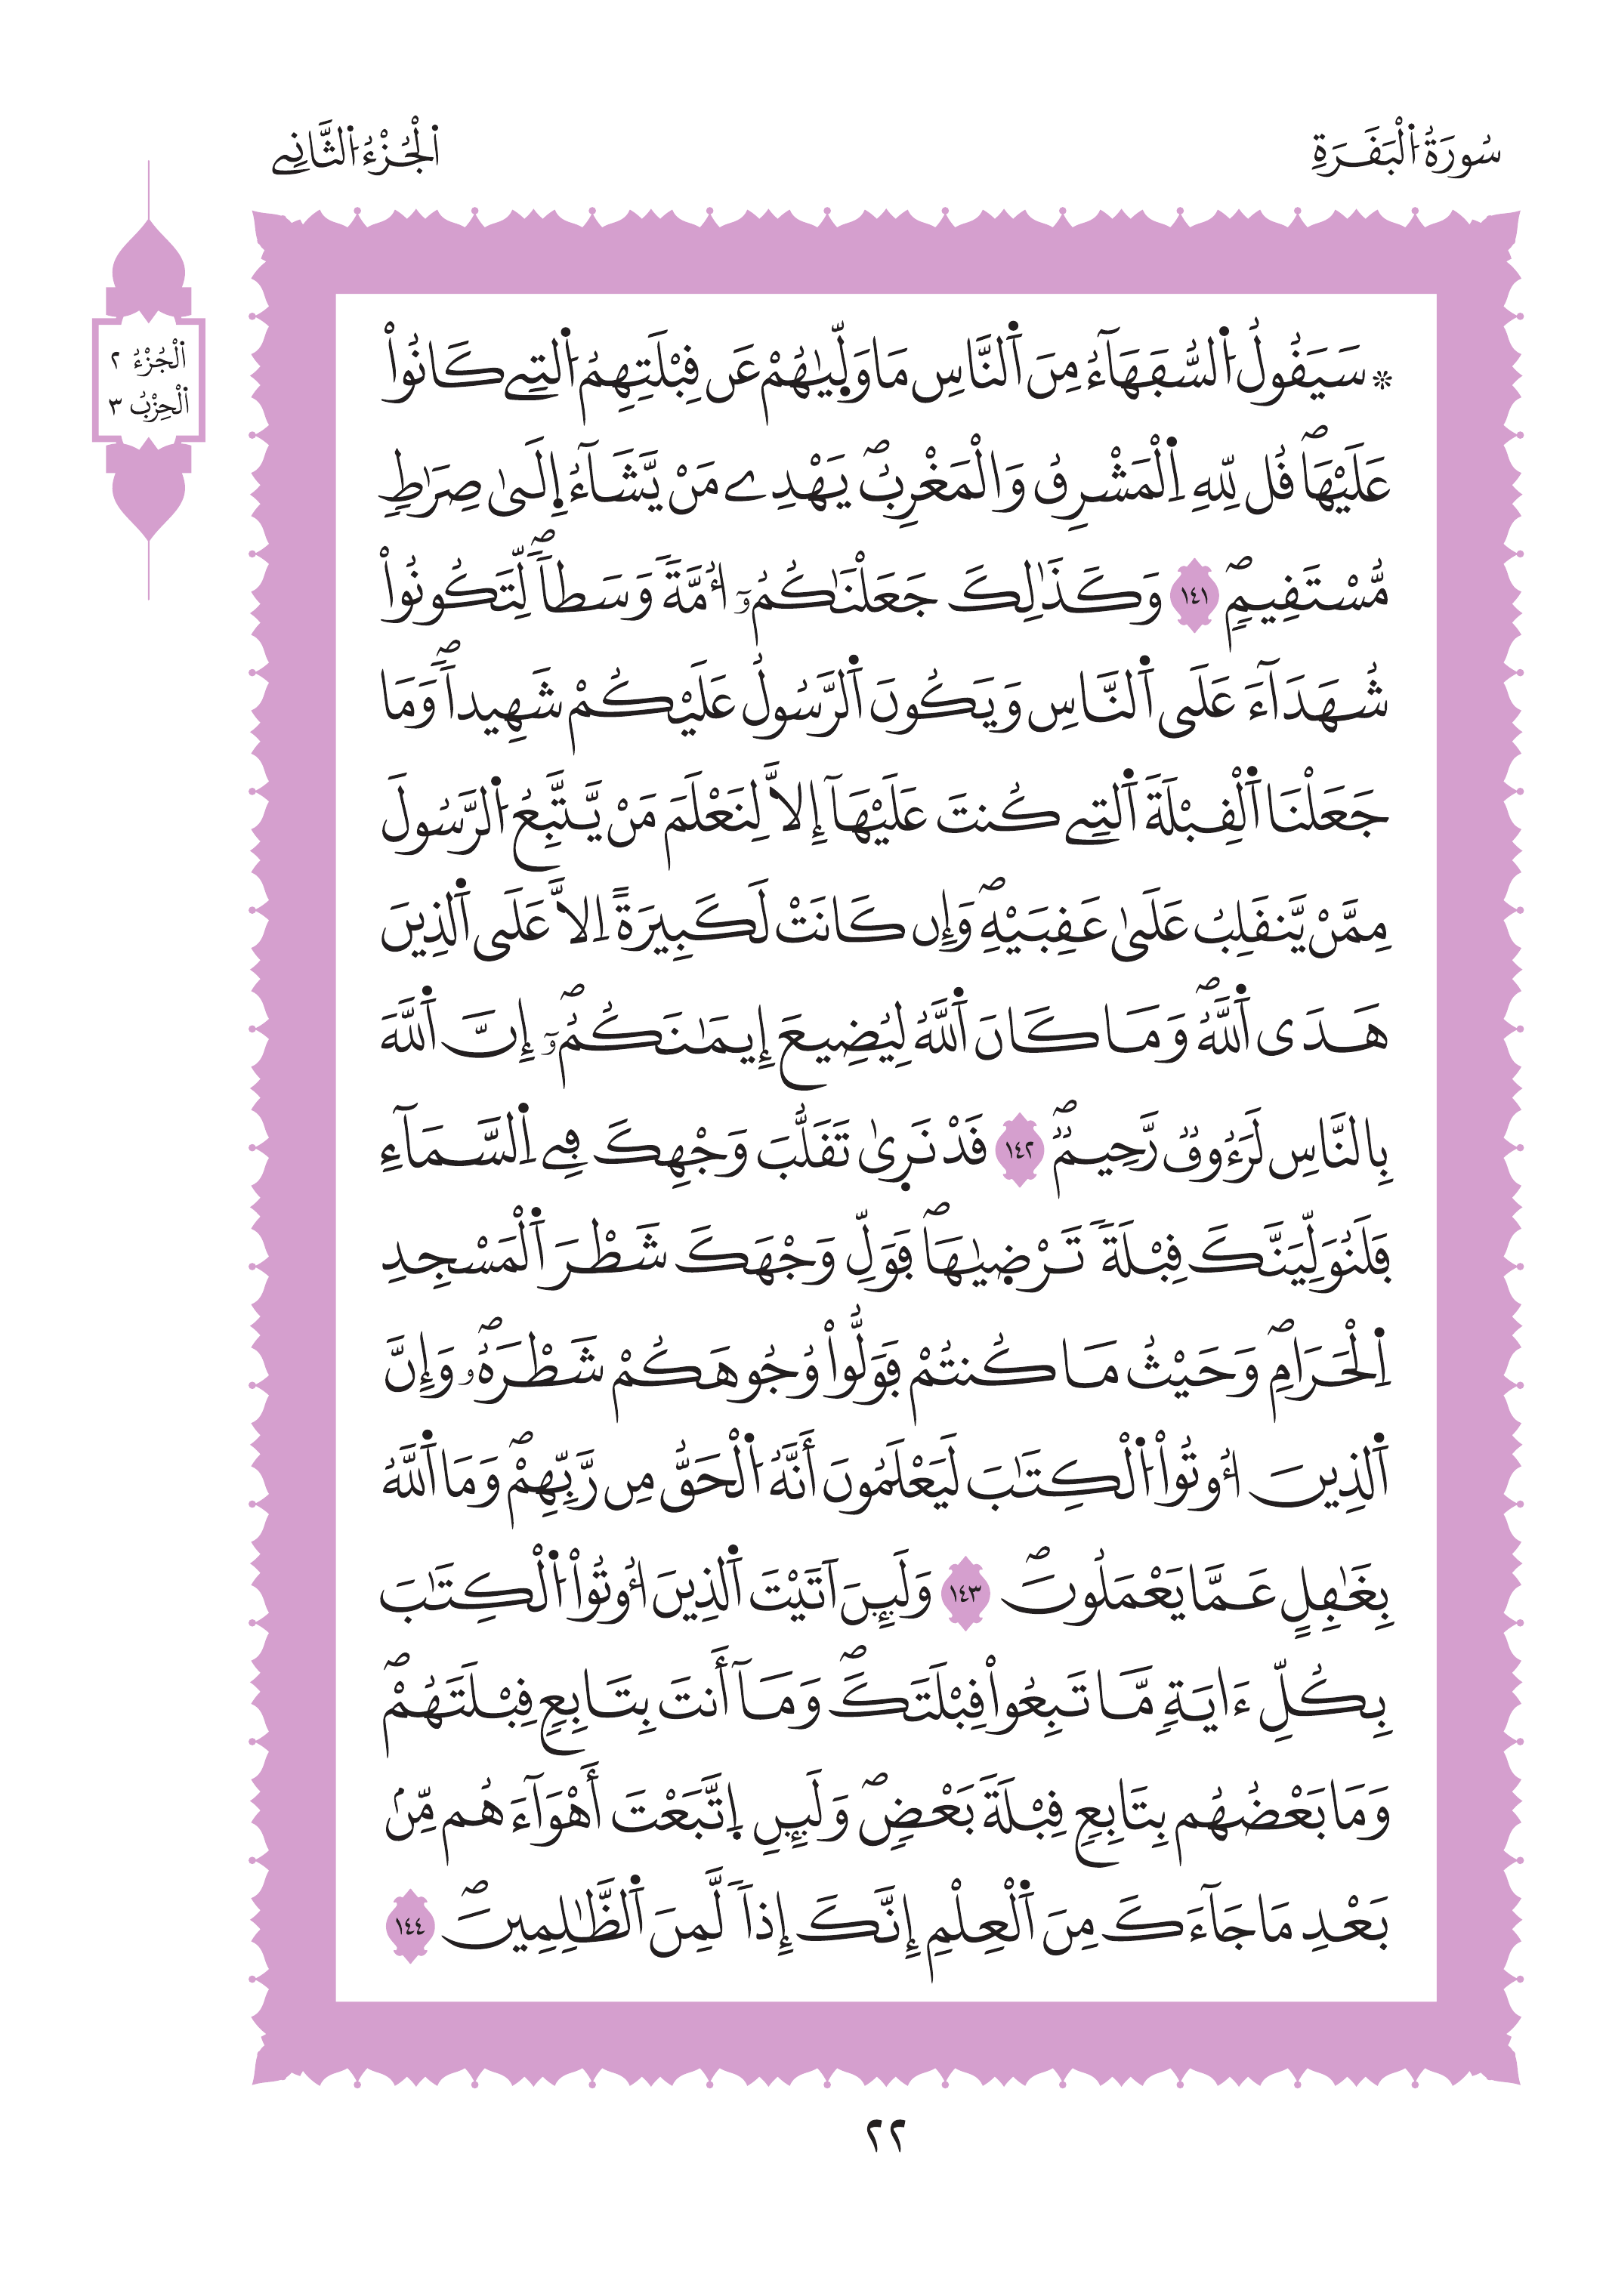 سُورَةُ اُ۬لْبَفَرَةِ
اَ۬لْجُزْءُ اُ۬لثَّانِے
اَ۬لْجُزْءُ ٢
اَ۬لْحِزْبُ ٣
* سَيَفُولُ اُ۬لسُّڢَهَآءُ مِنَ اَ۬لنَّاسِ مَا وَلّ۪يٰهُمْ عَں فِبْلَتِهِمُ اُ۬لتِے كَانُواْ
عَلَيْهَاۖ فُل لِّلهِ اِ۬لْمَشْرِفُ وَالْمَغْرِبُۖ يَهْدِے مَنْ يَّشَآءُ اِ۪لَىٰ صِرَٰطٖ
مُّسْتَفِيمٖۖ ١٤١ وَكَذَٰلِكَ جَعَلْنَٰكُمُۥٓ أُمَّةٗ وَسَطاٗۖ لِّتَكُونُواْ
شُهَدَآءَ عَلَى اَ۬لنَّاسِ وَيَكُونَ اَ۬لرَّسُولُ عَلَيْكُمْ شَهِيداٗۖ وَمَا
جَعَلْنَا اَ۬لْفِبْلَةَ اَ۬لتِے كُنتَ عَلَيْهَآ إِلاَّ لِنَعْلَمَ مَنْ يَّتَّبِعُ اُ۬لرَّسُولَ
مِمَّنْ يَّنفَلِبُ عَلَىٰ عَفِبَيْهِۖ وَإِں كَانَتْ لَكَبِيرَةً اِلاَّ عَلَى اَ۬لذِينَ
هَدَى اَ۬للَّهُۖ وَمَا كَانَ اَ۬للَّهُ لِيُضِيعَ إِيمَٰنَكُمُۥٓۖ إِنَّ اَ۬للَّهَ
بِالنَّاسِ لَرَءُوڢٞ رَّحِيمٞۖ ١٤٢ فَدْ نَر۪ىٰ تَفَلُّبَ وَجْهِكَ ڢِے اِ۬لسَّمَآءِ
ڢَلَنُوَلِّيَنَّكَ فِبْلَةٗ تَرْض۪يٰهَاۖ ڢَوَلِّ وَجْهَكَ شَطْرَ اَ۬لْمَسْجِدِ
اِ۬لْحَرَامِۖ وَحَيْثُ مَا كُنتُمْ ڢَوَلُّواْ وُجُوهَكُمْ شَطْرَهُۥۖ وَإِنَّ
اَ۬لذِينَ أُوتُواْ اُ۬لْكِتَٰبَ لَيَعْلَمُونَ أَنَّهُ اُ۬لْحَقُّ مِں رَّبِّهِمْۖ وَمَا اَ۬للَّهُ
بِغَٰڢِلٍ عَمَّا يَعْمَلُونَۖ ١٤٣ وَلَئِنَ اَتَيْتَ اَ۬لذِينَ أُوتُواْ اُ۬لْكِتَٰبَ
بِكُلِّ ءَايَةٖ مَّا تَبِعُواْ فِبْلَتَكَۖ وَمَآ أَنتَ بِتَابِعٖ فِبْلَتَهُمْۖ
وَمَا بَعْضُهُم بِتَابِعٖ فِبْلَةَ بَعْضٖۖ وَلَئِںِ اِ۪تَّبَعْتَ أَهْوَآءَهُم مِّنۢ
بَعْدِ مَا جَآءَكَ مِنَ اَ۬لْعِلْمِ إِنَّكَ إِذاٗ لَّمِنَ اَ۬لظَّٰلِمِينَۖ ١٤٤
٢٢